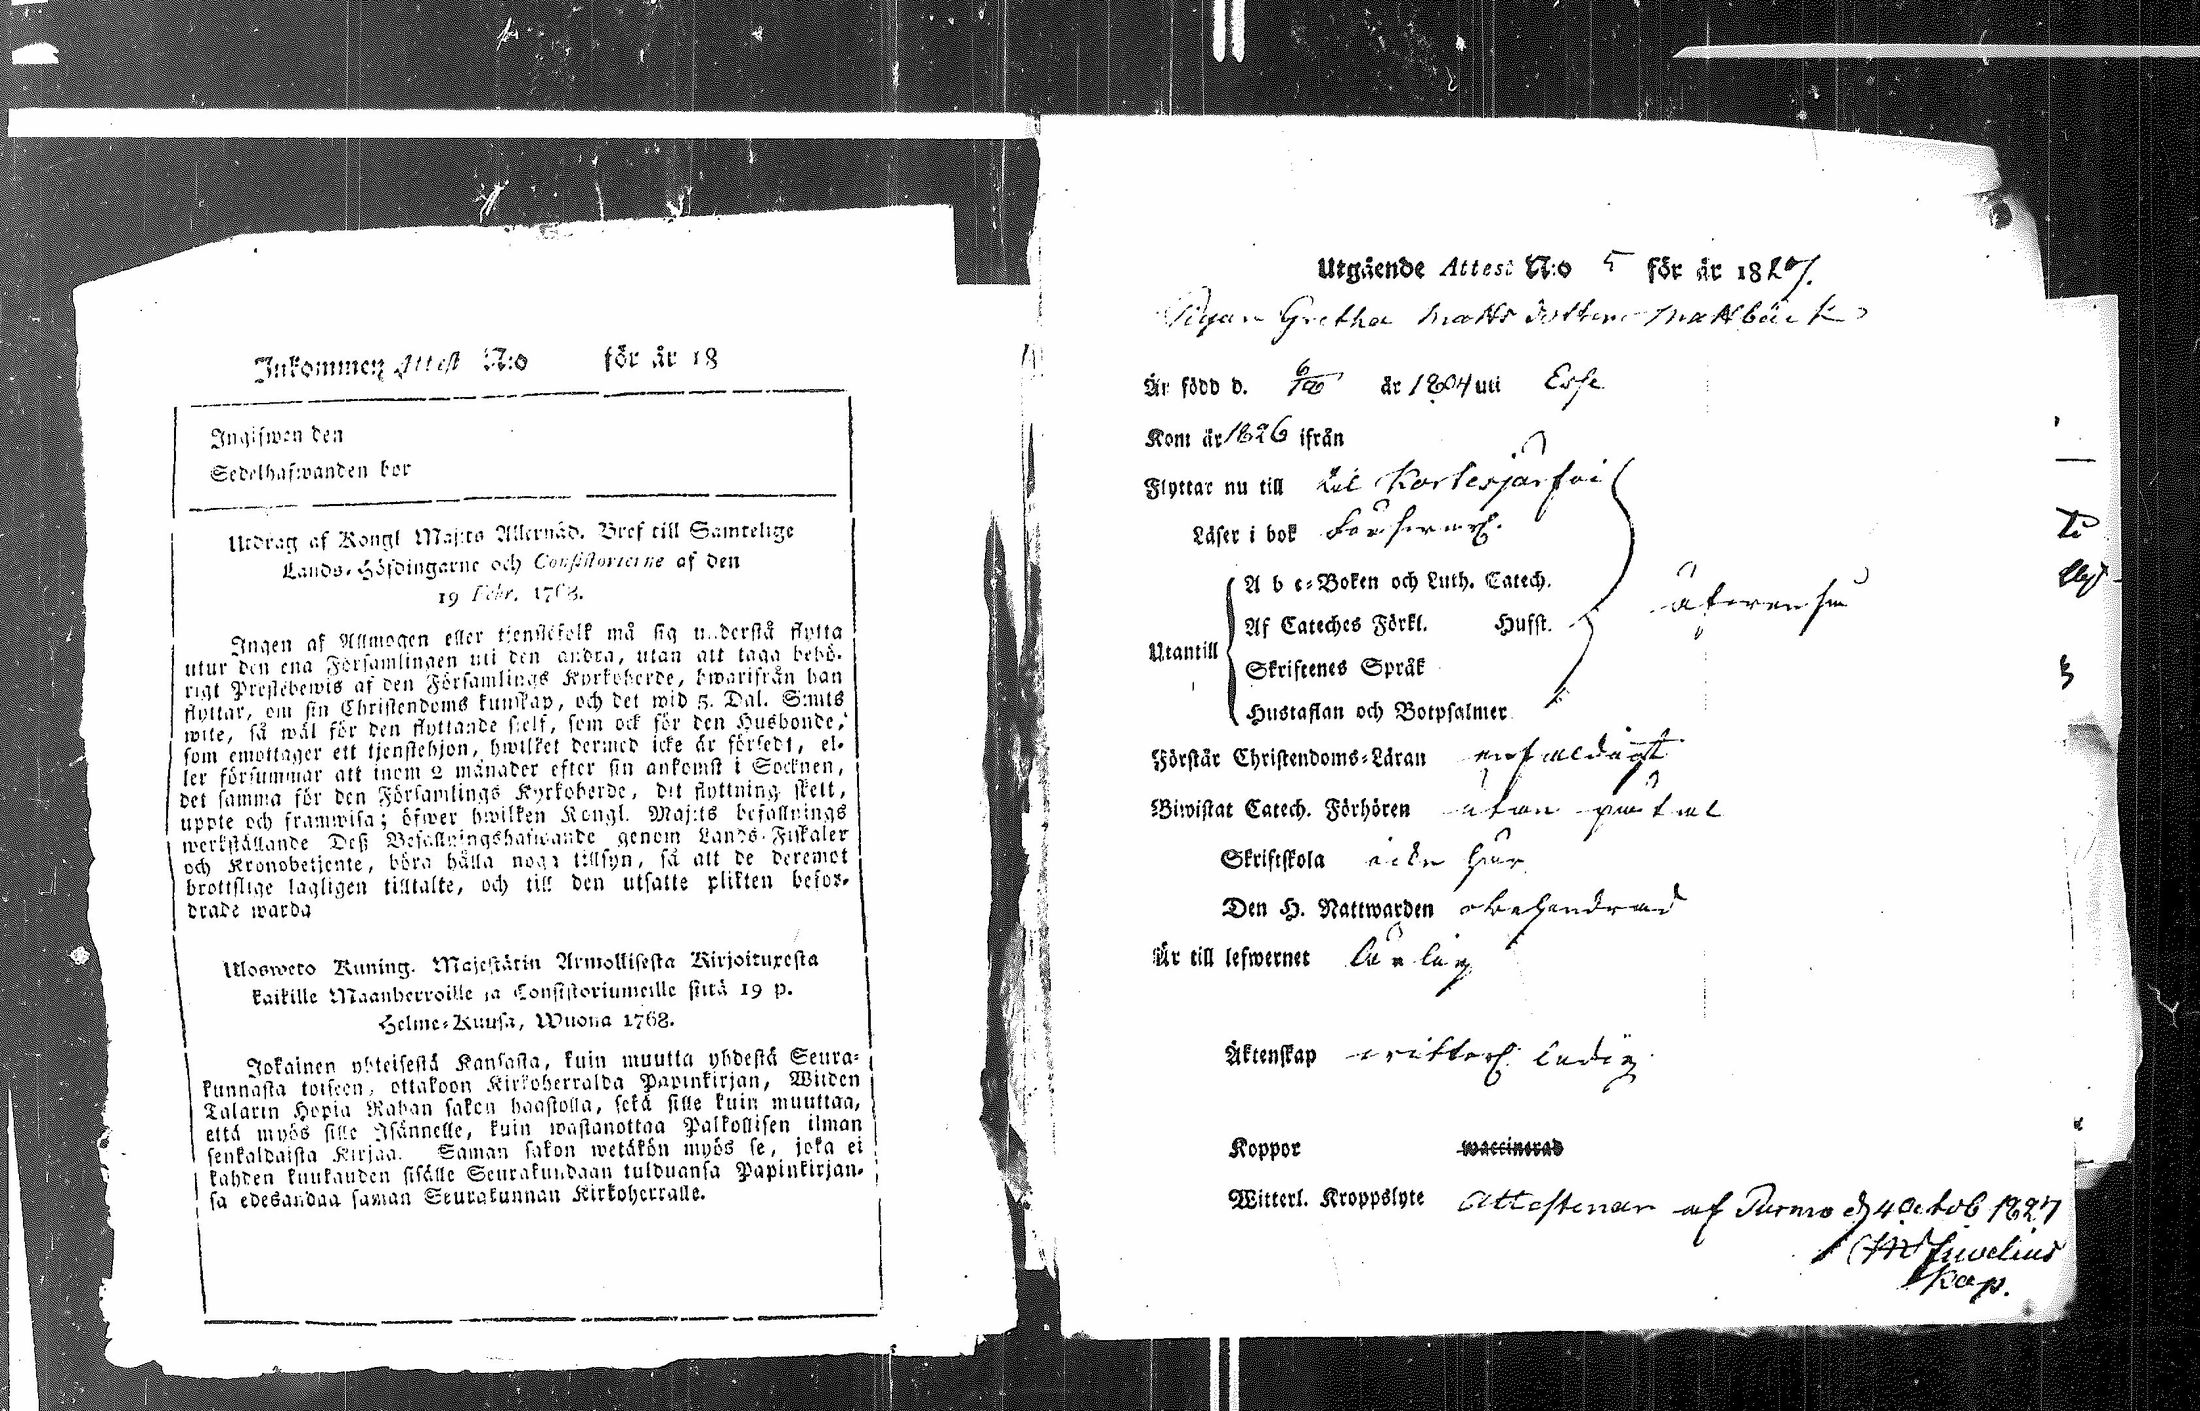 Inkommen Attest N:o för år 18
Ingifwen den
Sedelhafwanden bor
Utdrag af Kongl Maj:ts Allernåd. Bref till Samtelige
Lands-Höfdingarne och Consistorierne af den
19 Febr. 1768.
Ingen af Allmogen eller tjenstefolk må sig understå flytta
utur den ena Församlingen uti den andra, utan att taga behö-
rigt Prestebewis af den Församlings Kyrkoherde, hwarifrån han
flyttar, om sin Christendoms kunskap, och det wid 5. Dal. S:mts
wite, så wäl för den flyttande sjelf, som ock för den Husbonde,
som emottager ett tjenstehjon, hwilket dermed icke är försedt, el-
ler försummar att inom 2 månader efter sin ankomst i Socknen,
det samma för den Församlings Kyrkoherde, dit flyttning skett,
uppte och framwisa; öfwer hwilken Kongl. Maj:ts befallnings
werkställande Deß Befallningshafwande genom Lands-Fiskaler
och Kronobetjente, böra hålla noga tillsyn, så att de deremot
brottslige lagligen tilltalte, och till den utsatte plikten befor-
drade warda
Ulosweto Kuning. Majestätin Armollisesta Kirjoituxesta
kaikille Maanherroille ja Consistoriumeille siitä 19 p.
Helme-Kuusa, Wuona 1768.
Jokainen yhteisestä Kansasta, kuin muutta yhdestä Seura-
kunnasta toiseen, ottakoon Kirkoherralda Papinkirjan, Wiiden
Talarin Hopia Rahan sakon haastolla, sekä sille kuin muuttaa,
että myös sille Isännelle, kuin wastanottaa Palkollisen ilman
senkaldaista Kirjaa. Saman sakon wetäkön myös se, joka ei
kahden kuukauden sisälle Seurakundaan tulduansa Papinkirjan-
sa edesandaa saman Seurakunnan Kirkoherralle.
Utgående Attest N:o 5 för år 1827.
Pigan Gretha Matts dotter Mattbäck
Är född d. 6/10 år 1804 uti Esse
Kom år 1826 ifrån
Flyttar nu till Kortesjärfvi
Läser i bok försvarl.
A b c-Boken och Luth. Catech.
Af Cateches Förkl. Husst.
Utantill
Skriftenes Språk
Hustaflan och Botpsalmer
återen
Förstår Christendoms-Läran enfaldigt
Biwistat Catech. Förhören utan
Skriftskola icke här
Den H. Nattwarden obehindrad
Är till lefwernet ärlig
Äktenskap witterl. ledig
Koppor waccinerad
Witterl. Kroppslyte Attesterar af Purmo d 4 Octob 1827
Kap.